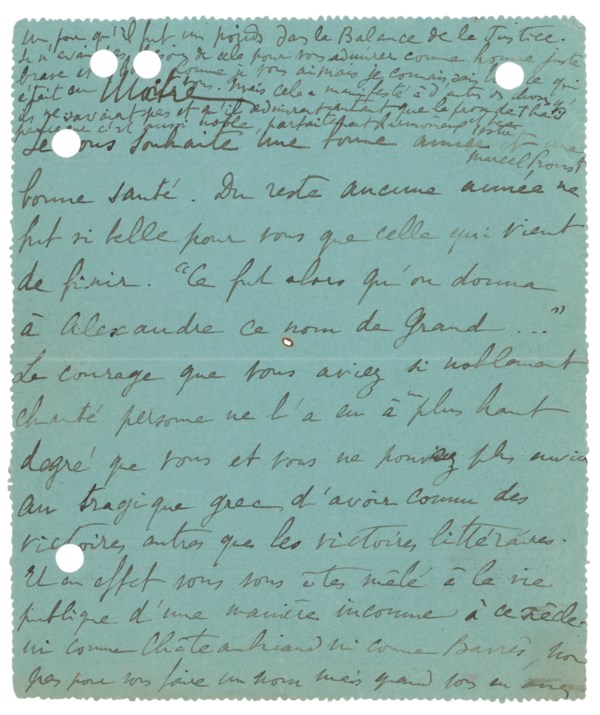 un jour qu'il fut un poids dans la Balance de la Justice.
Je n'avais pas besoin de cela pour vous admirer comme homme juste
brave et comme je vous aimais je connaissais ce qui
était en vous. Mais cela a manifesté à d'autres des choses qu'
ils ne savaient pas et qu'ils admirent autant que la prose de Thaïs
parce que c'est aussi noble, parfaitement harmonieux et beau.
Maître
Votre
Marcel Proust
Je vous souhaite une bonne année et une
bonne santé. Du reste aucune année ne
fut si belle pour vous que celle qui vient
de finir. "Ce fut alors qu'on donna
à Alexandre ce nom de Grand..."
Le courage que vous aviez si noblement
chanté personne ne l'a eu à un plus haut
degré que vous et vous ne pouvez plus envier
au tragique grec d'avoir connu des
victoires autres que les victoires littéraires.
Et en effet vous vous êtes mêlé à la vie
publique d'une manière inconnue à ce siècle
ni comme Chateaubriand ni comme Barrès, non
pas pour vous faire un nom mais quand vous en aviez